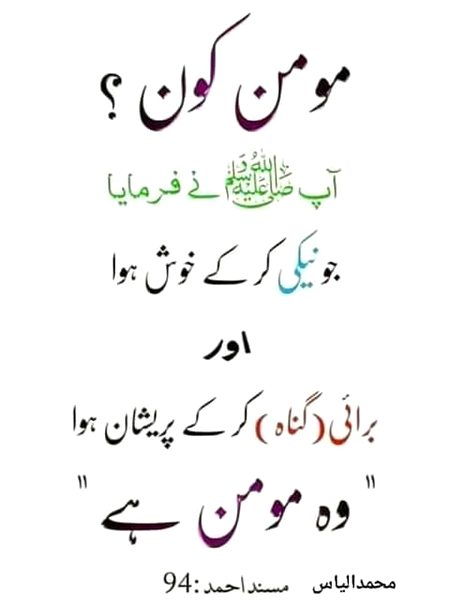 مومن کون ؟
آپ ﷺ نے فرمایا
جو نیکی کر کے خوش ہوا
اور
برائی (گناہ) کر کے پریشان ہوا
"وہ مومن ہے"
محمدالیاس مسنداحمد:94